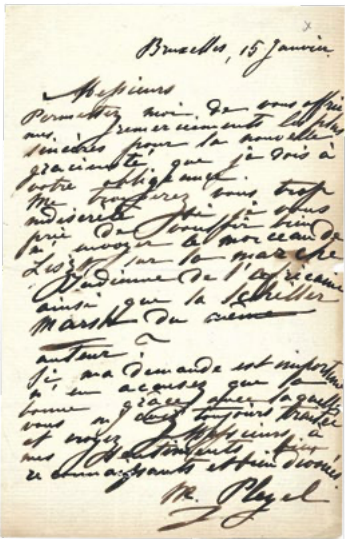 Bruxelles, 15 Janvier
Messieurs
Permettez moi de vous offrir
mes remerciements les plus
sincères pour la nouvelle
gracieuseté que je dois à
votre obligeance.
Me trouverez vous trop
indiscrète si je vous
prie de vouloir bien
m'envoyer le morceau de
Liszt sur la marche
Indienne de l'Africaine
ainsi que la Schiller
Marsch du même
auteur ?
Si ma demande est importune
n'en accusez que la
bonne grâce avec laquelle
vous m'avez toujours
et croyez Messieurs, à
mes sentiments bien
reconnaissants et bien dévoués.
M. Pleyel